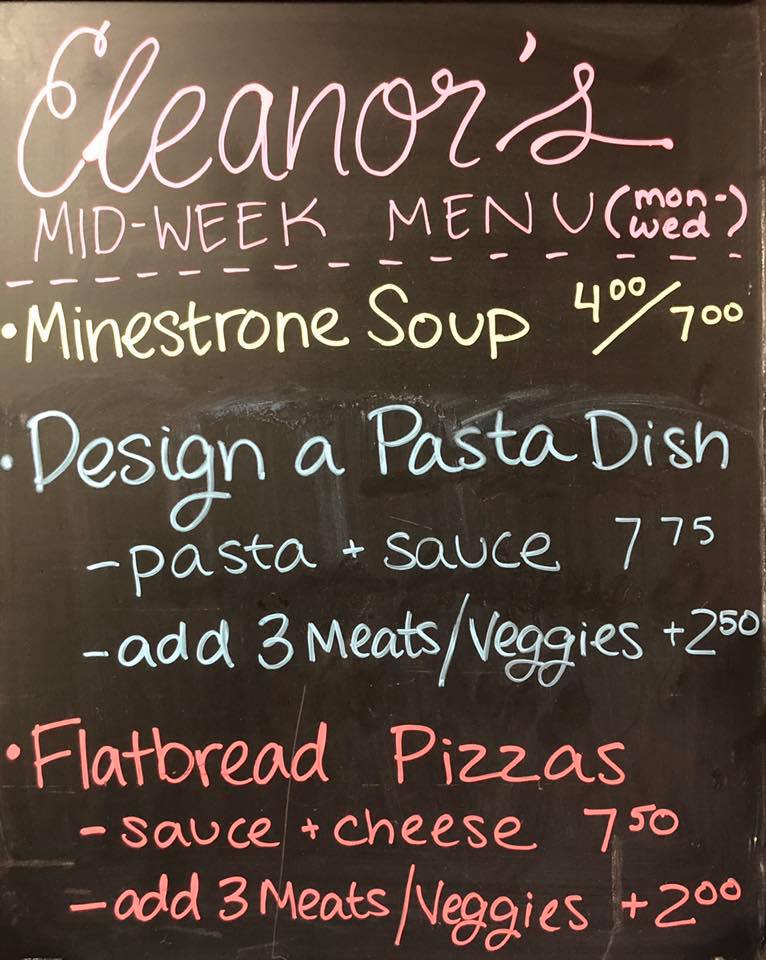 Eleanor's
MID-WEEK MENU (mon-wed)
• Minestrone Soup 4⁰⁰/7⁰⁰
• Design a Pasta Dish
- pasta + sauce 7⁷⁵
- add 3 Meats/Veggies +2⁵⁰
• Flatbread Pizzas
- sauce + cheese 7⁵⁰
- add 3 Meats/Veggies +2⁰⁰